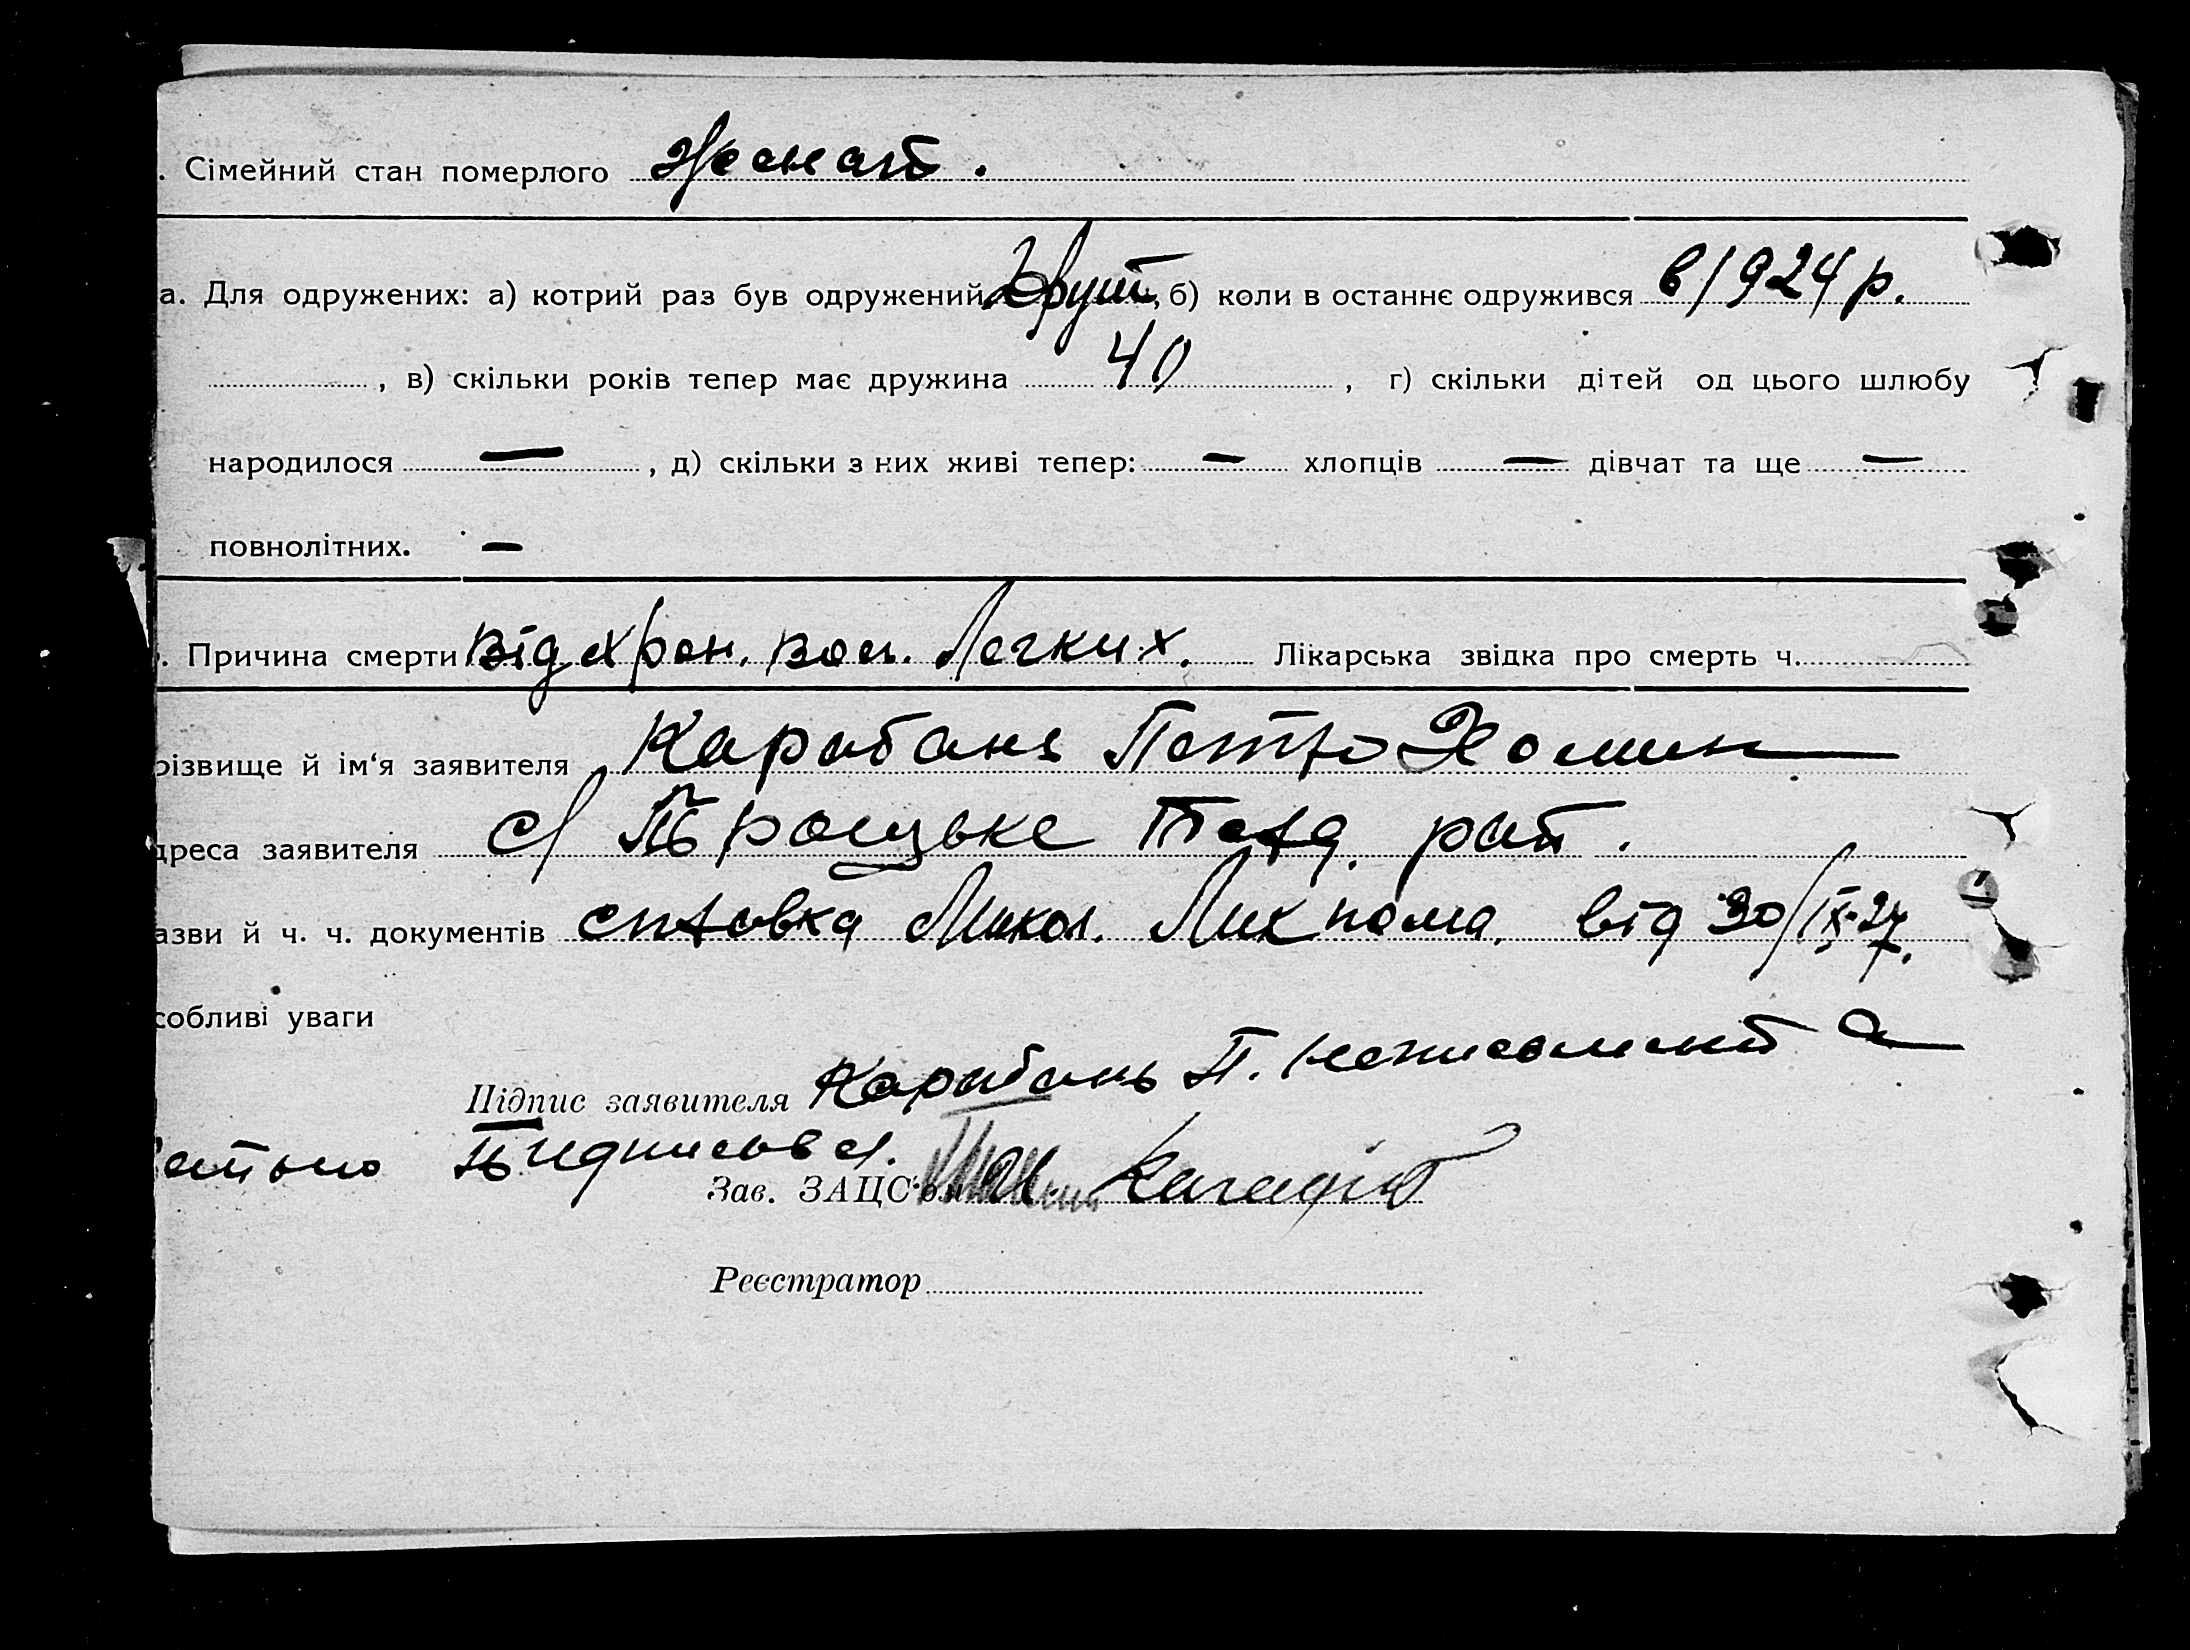 . Сімейний стан померлого Женат .
а. Для одружених: а) котрий раз був одружений Другий, б) коли в останнє одружився в 1924 р.
, в) скільки років тепер має дружина 40 , г) скільки дітей од цього шлюбу
народилося — , д) скільки з них живі тепер: — хлопців — дівчат та ще —
повнолітних. —
. Причина смерти Від хрон. восп. Легких. Лікарська звідка про смерть ч.
різвище й ім‘я заявителя Карабань Петро Хомич
дреса заявителя с/ Троцьке рай .
азви й ч. ч. документів справка Микол. від 30/IX-27.
собливі уваги
Підпис заявителя Карабань П. неписьмений а
Підписався.
Зав. ЗАЦС‘ом
Реєстратор